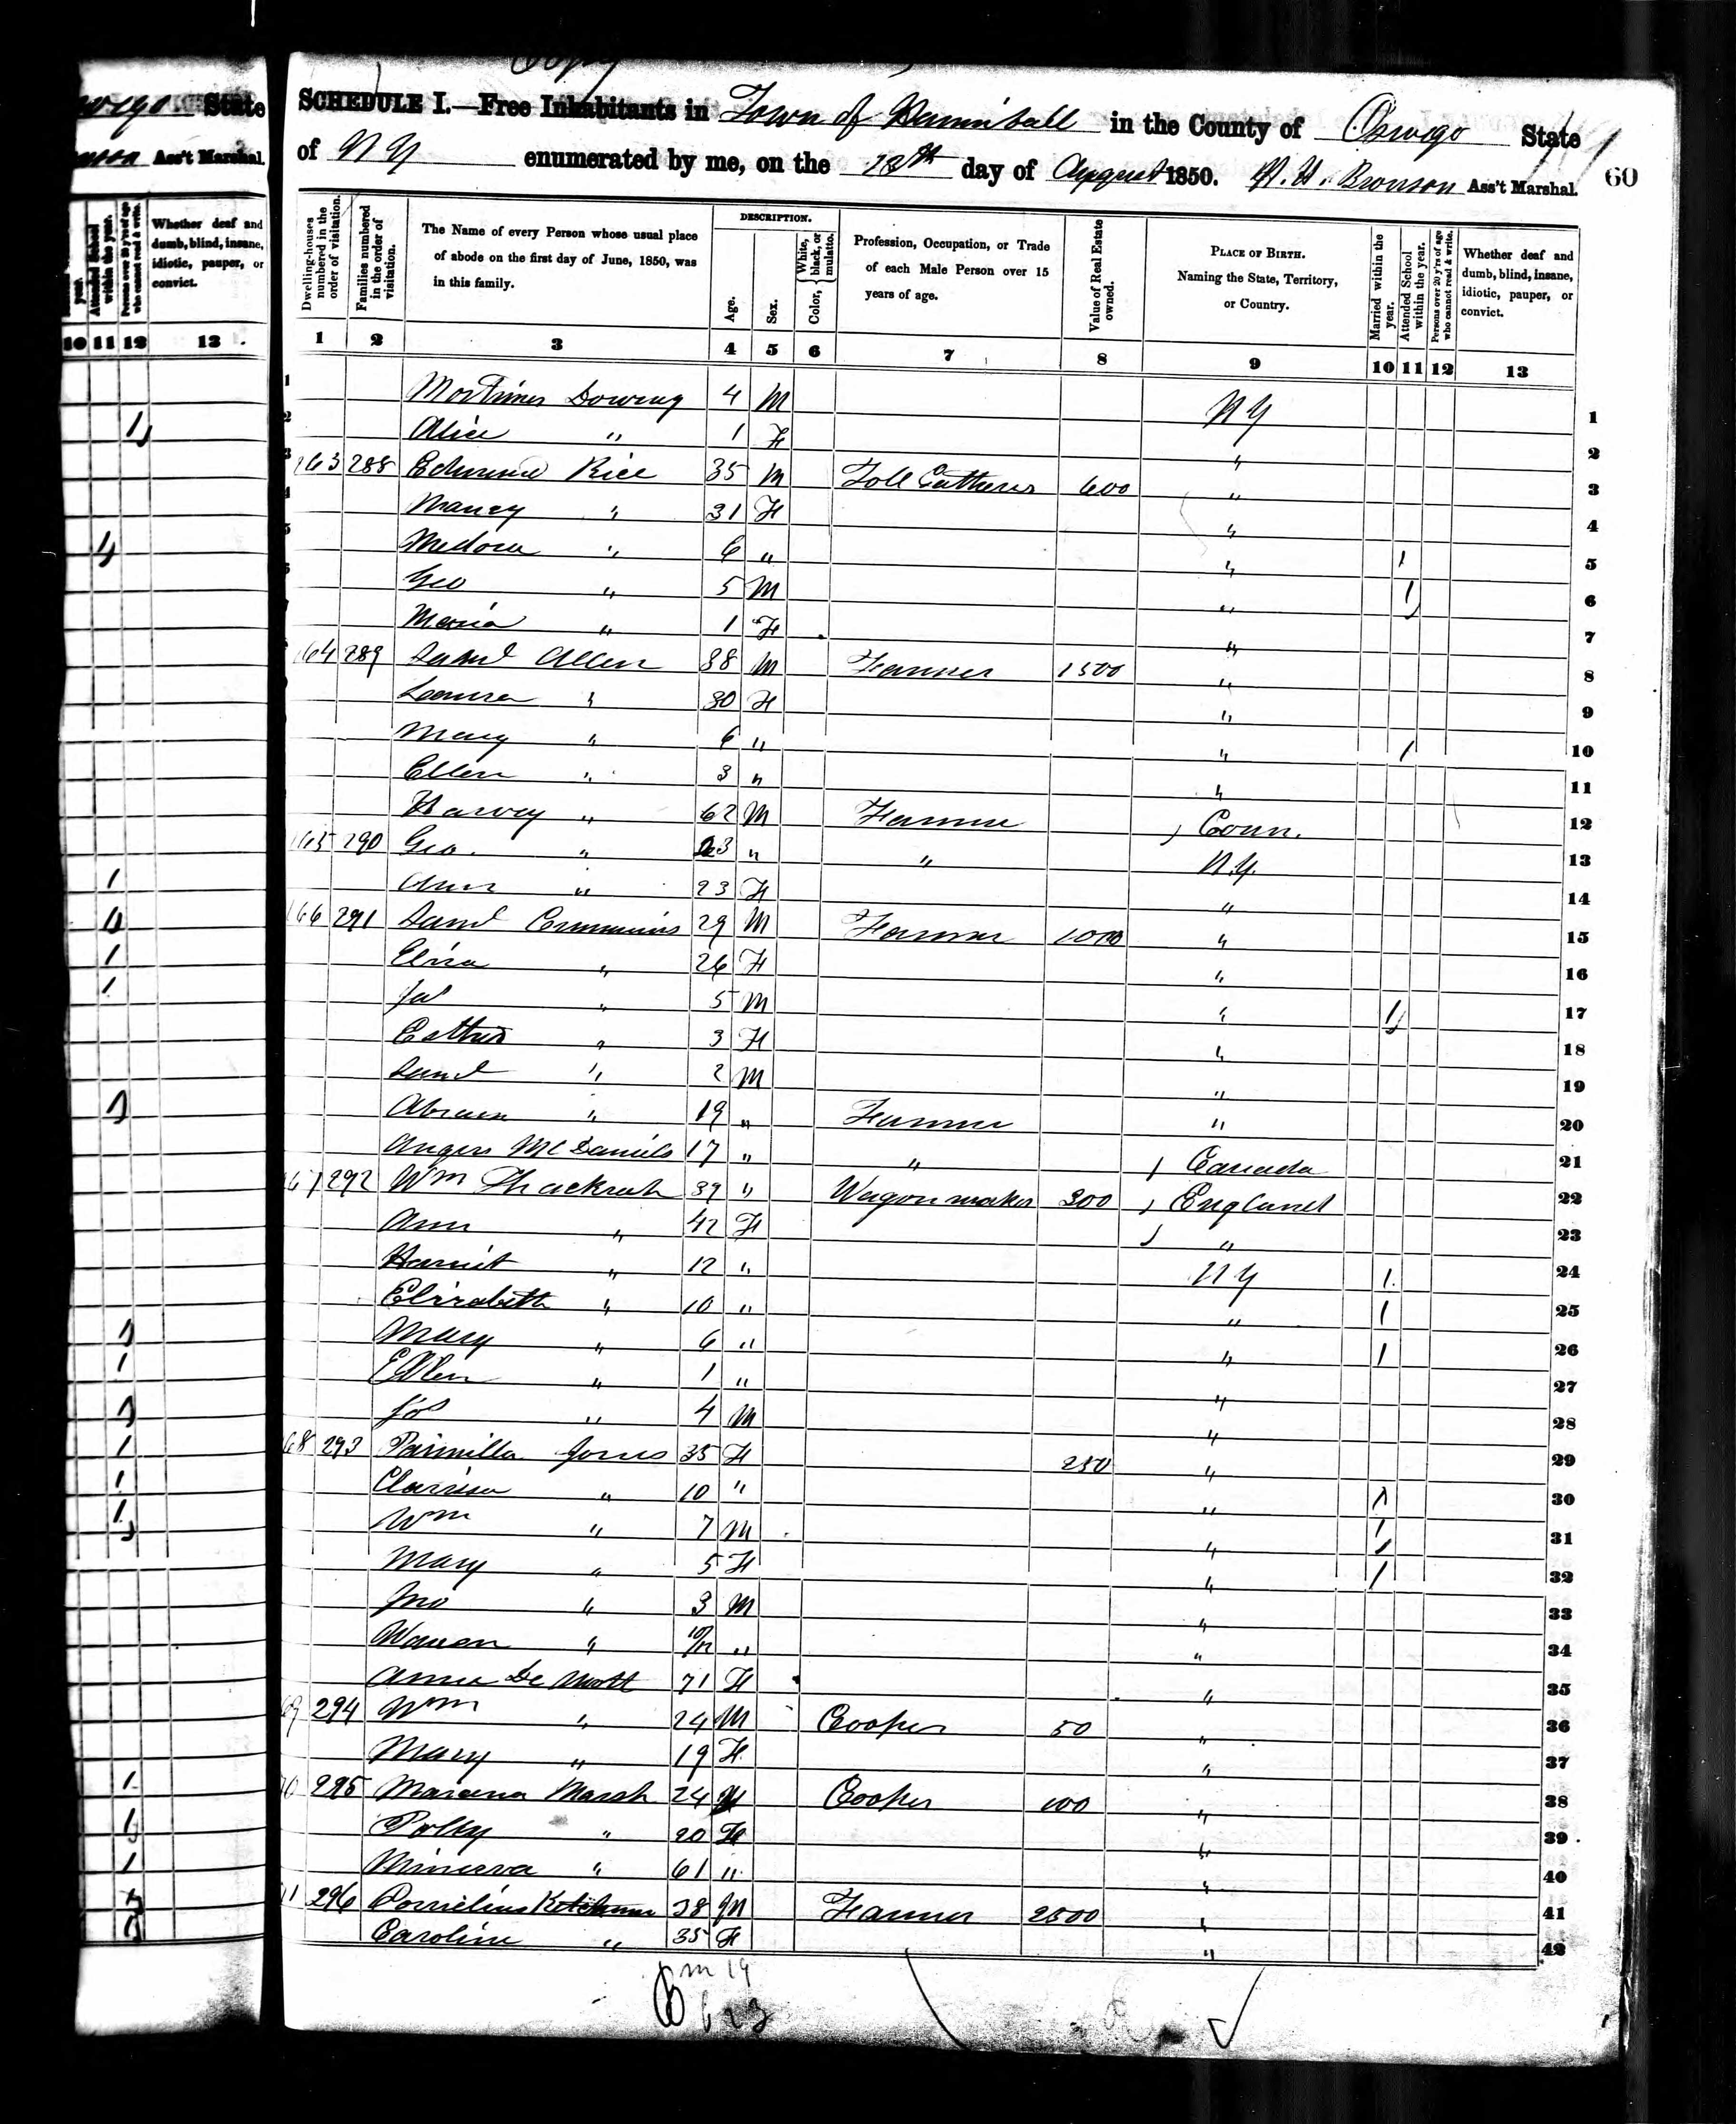 Copy
SCHEDULE I.—Free Inhabitants in Town of Hanniball in the County of Oswego State
of N Y enumerated by me, on the day of August 1850. N. H. Bronson Ass't Marshal. 60
State
Ass't Marshal.
Dwelling-houses numbered in the order of visitation.
Families numbered in the order of visitation.
The Name of every Person whose usual place of abode on the first day of June, 1850, was in this family.
DESCRIPTION.
Age.
Sex.
Color, White, black, or mulatto.
Profession, Occupation, or Trade of each Male Person over 15 years of age.
Value of Real Estate owned.
PLACE OF BIRTH. Naming the State, Territory, or Country.
Married within the year.
Attended School within the year.
Persons over 20 y'rs of age who cannot read & write.
Whether deaf and dumb, blind, insane, idiotic, pauper, or convict.
1 2 3 4 5 6 7 8 9 10 11 12 13
Whether deaf and dumb, blind, insane, idiotic, pauper, or convict.
10 11 12 13
1 Mortimer 4 M N Y 1
2 Alice " 1 F " 2
263 288 Edmund Rice 35 M Toll Gatherer 600 " 3
Nancy " 31 F " 4
Medora " 6 " " 1 5
Geo " 5 M " 1 6
Maria " 1 F " 7
264 289 Allen 38 M Farmer 1500 " 8
" 30 F " 9
Mary " 6 " " 1 10
Ellen " 3 " " 11
Harvey " 62 M Farmer Conn. 12
265 290 Geo. " 23 " " N.Y. 13
Ann " 23 F " 14
266 291 Cummins 29 M Farmer 1000 " 15
Eliza " 26 F " 16
" 5 M " 1 17
Esther " 3 F " 18
" 2 M " 19
Abram " 19 " Farmer " 20
Angus McDaniels 17 " " Canada 21
267 292 Wm Thackrah 39 " Wagon maker 300 England 22
Ann " 42 F " 23
Harriet " 12 " N Y 1 24
Elizabeth " 10 " " 1 25
Mary " 6 " " 1 26
Ellen " 1 " " 27
Jos " 4 M " 28
268 293 Parmilla Jones 35 F 250 " 29
Clarissa " 10 " " 1 30
Wm " 7 M " 1 31
Mary " 5 F " 1 32
Jno " 3 M " 33
Warren " 10/12 " " 34
De Mott 71 F " 35
69 294 Wm " 24 M Cooper 50 " 36
Mary " 19 F " 37
70 295 Marsh 24 M Cooper 100 " 38
Polly " 20 F " 39
Minerva " 61 " " 40
71 296 Cornelius Ketchum 38 M Farmer 2500 " 41
Caroline " 35 F " 42
m 19
623